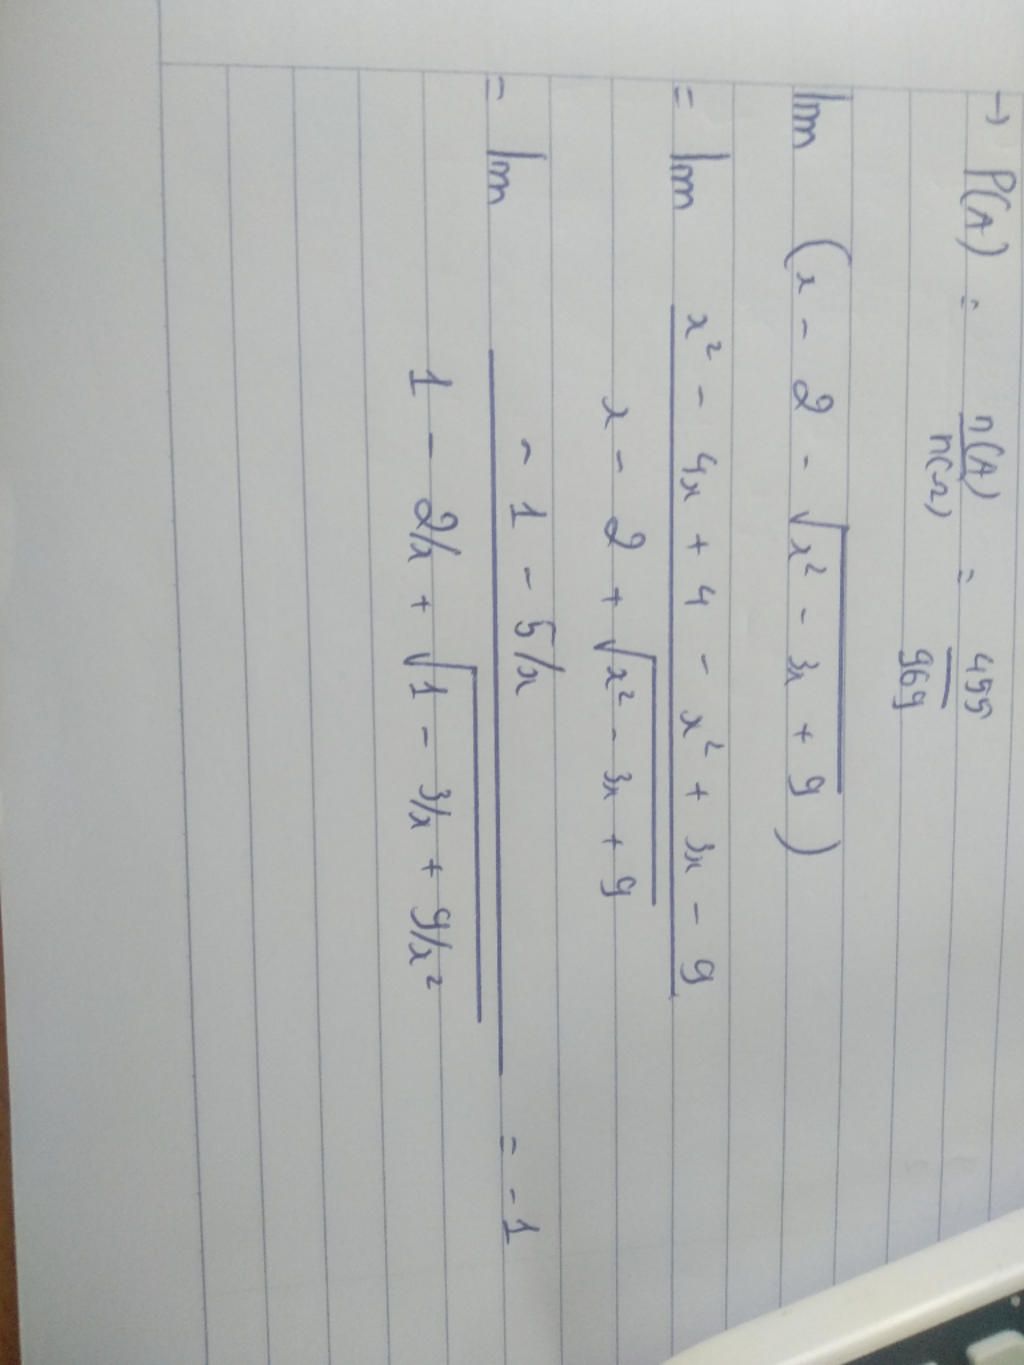 → P(A) = n(A) / n(Ω) = 455 / 969
lim (x - 2 - √x² - 3x + 9)
= lim x² - 4x + 4 - x² + 3x - 9
x - 2 + √x² - 3x + 9
= lim - 1 - 5/x = -1
1 - 2/x + √1 - 3/x + 9/x²